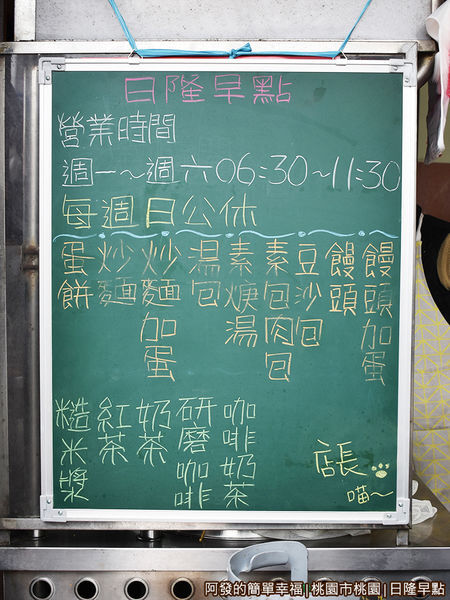 日隆早點
營業時間
週一～週六06:30～11:30
每週日公休
蛋餅
炒麵
炒麵加蛋
湯包
素焿湯
素包肉包
豆沙包
饅頭
饅頭加蛋
糙米漿
紅茶
奶茶
研磨咖啡
咖啡奶茶
店長
喵～
阿發的簡單幸福|桃園市桃園|日隆早點